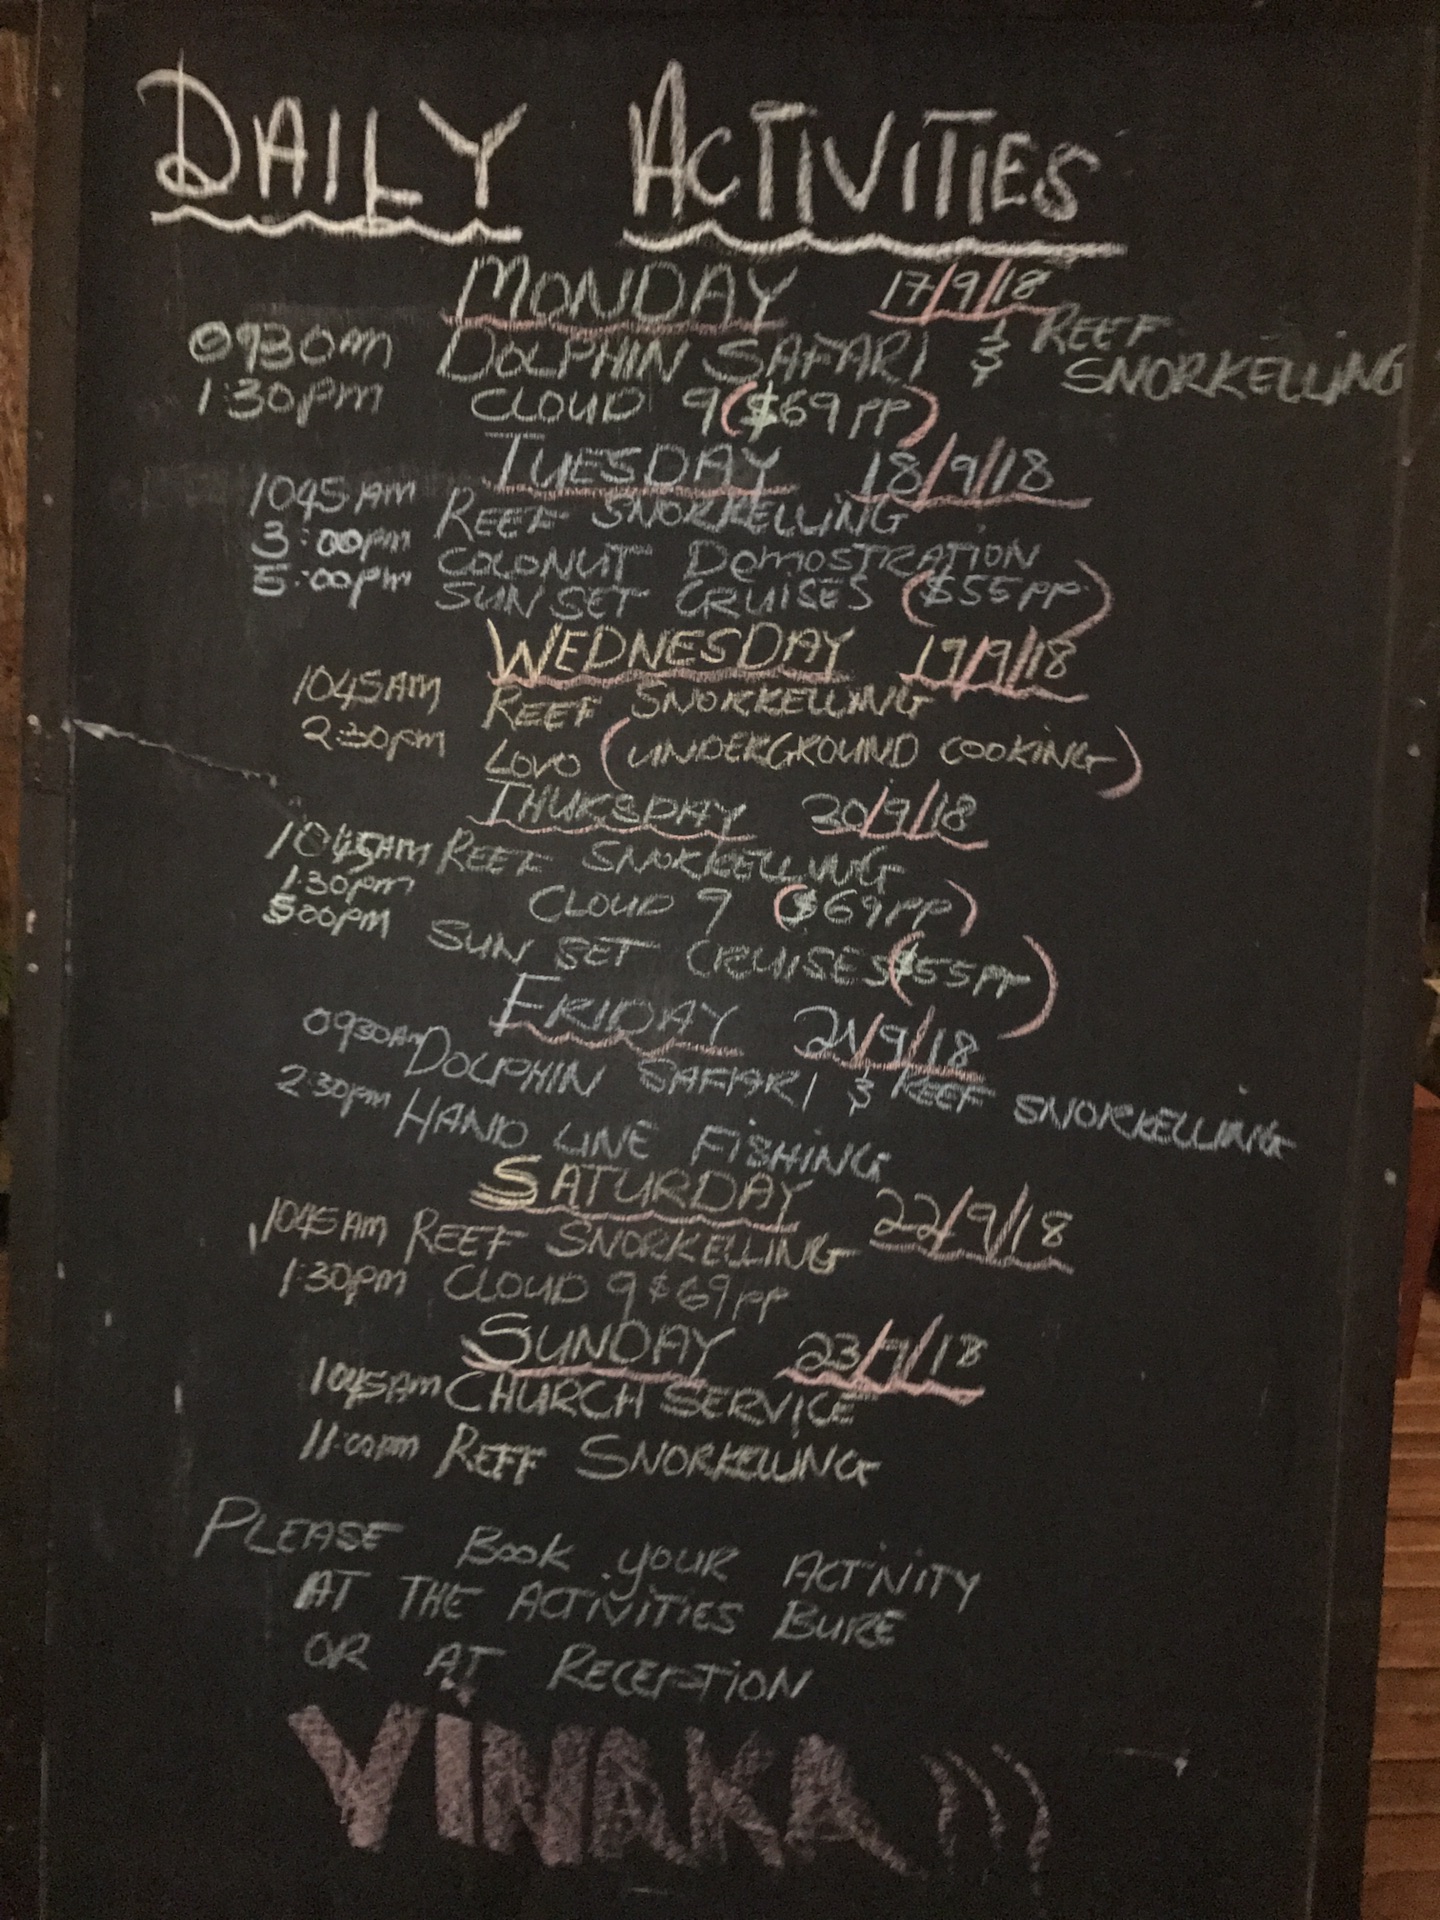 DAILY ACTIVITIES
MONDAY 17/9/18
0930am DOLPHIN SAFARI & REEF SNORKELLING
1:30pm CLOUD 9 ($69PP)
TUESDAY 18/9/18
1045AM REEF SNORKELLING
3:00pm COLONUT DEMOSTRATION
5:00pm SUN SET CRUISES ($55PP)
WEDNESDAY 19/9/18
1045AM REEF SNORKELLING
2:30pm LOVO (UNDERGROUND COOKING)
THURSDAY 20/9/18
1045AM REEF SNORKELLING
1:30pm CLOUD 9 ($69PP)
5:00pm SUN SET CRUISES ($55PP)
FRIDAY 21/9/18
0930AM DOLPHIN SAFARI & REEF SNORKELLING
2:30pm HAND LINE FISHING
SATURDAY 22/9/18
1045AM REEF SNORKELLING
1:30pm CLOUD 9 $69PP
SUNDAY 23/9/18
1045AM CHURCH SERVICE
11:00pm REEF SNORKELLING
PLEASE BOOK YOUR ACTIVITY
AT THE ACTIVITIES BURE
OR AT RECEPTION
VINAKA )))